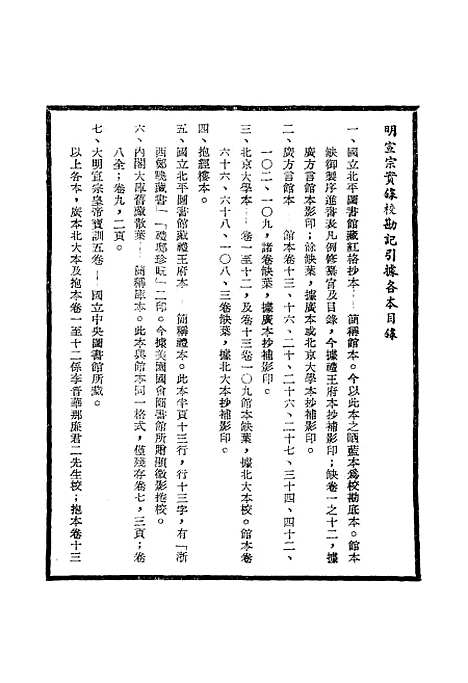 明宣宗實錄校勘記引據各本目錄
一、國立北平圖書館藏紅格抄本——簡稱館本。今以此本之曬藍本爲校勘底本。館本
缺御製序進書表凡例修纂官及目錄，今據禮王府本抄補影印；缺卷一之十二，據
廣方言館本影印；餘缺葉，據廣本或北京大學本抄補影印。
二、廣方言館本——館本卷十三、十六、二十、二十六、二十七、三十四、四十二、
一〇二、一〇九，諸卷缺葉，據廣本抄補影印。
三、北京大學本——卷一至十二，及卷十三卷一〇九館本缺葉，據北大本校。館本卷
六十六、六十八、一〇八、三卷缺葉，據北大本抄補影印。
四、抱經樓本。
五、國立北平圖書館藏禮王府本——簡稱禮本。此本半頁十三行，行十三字，有「浙
西鄭曉藏書」「禮邸珍玩」二印。今據美國國會圖書館所贈顯微影捲校。
六、內閣大庫舊藏散葉——簡稱庫本。此本與館本同一格式，僅殘存卷七，三頁；卷
八全；卷九，二頁。
七、大明宣宗皇帝寶訓五卷——國立中央圖書館所藏。
以上各本，廣本北大本及抱本卷一至十二係李晉華那廉君二先生校；抱本卷十三